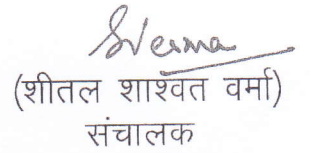 SVerma
(शीतल शाश्वत वर्मा)
संचालक